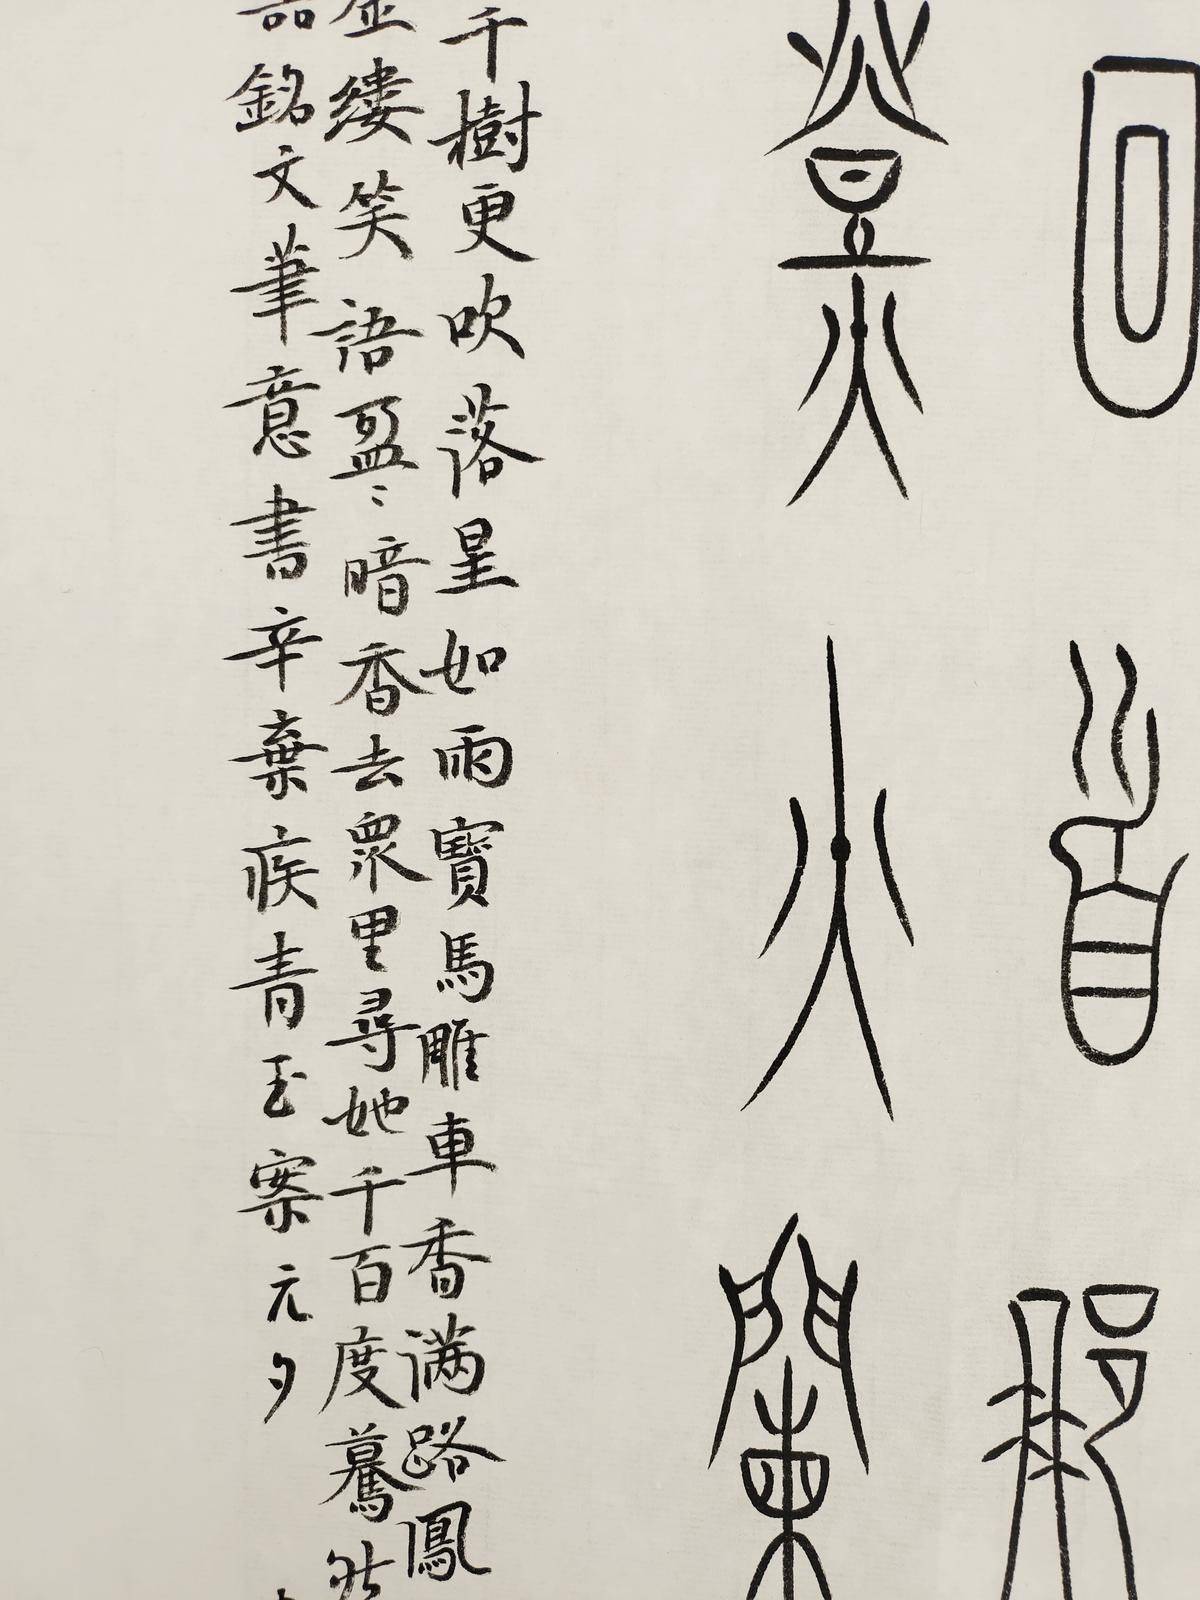 回首 卻
燈火闌
千樹更吹落星如雨寶馬雕車香滿路鳳
縷笑語盈〻暗香去眾里尋她千百度驀
銘文筆意書辛棄疾青玉案元夕